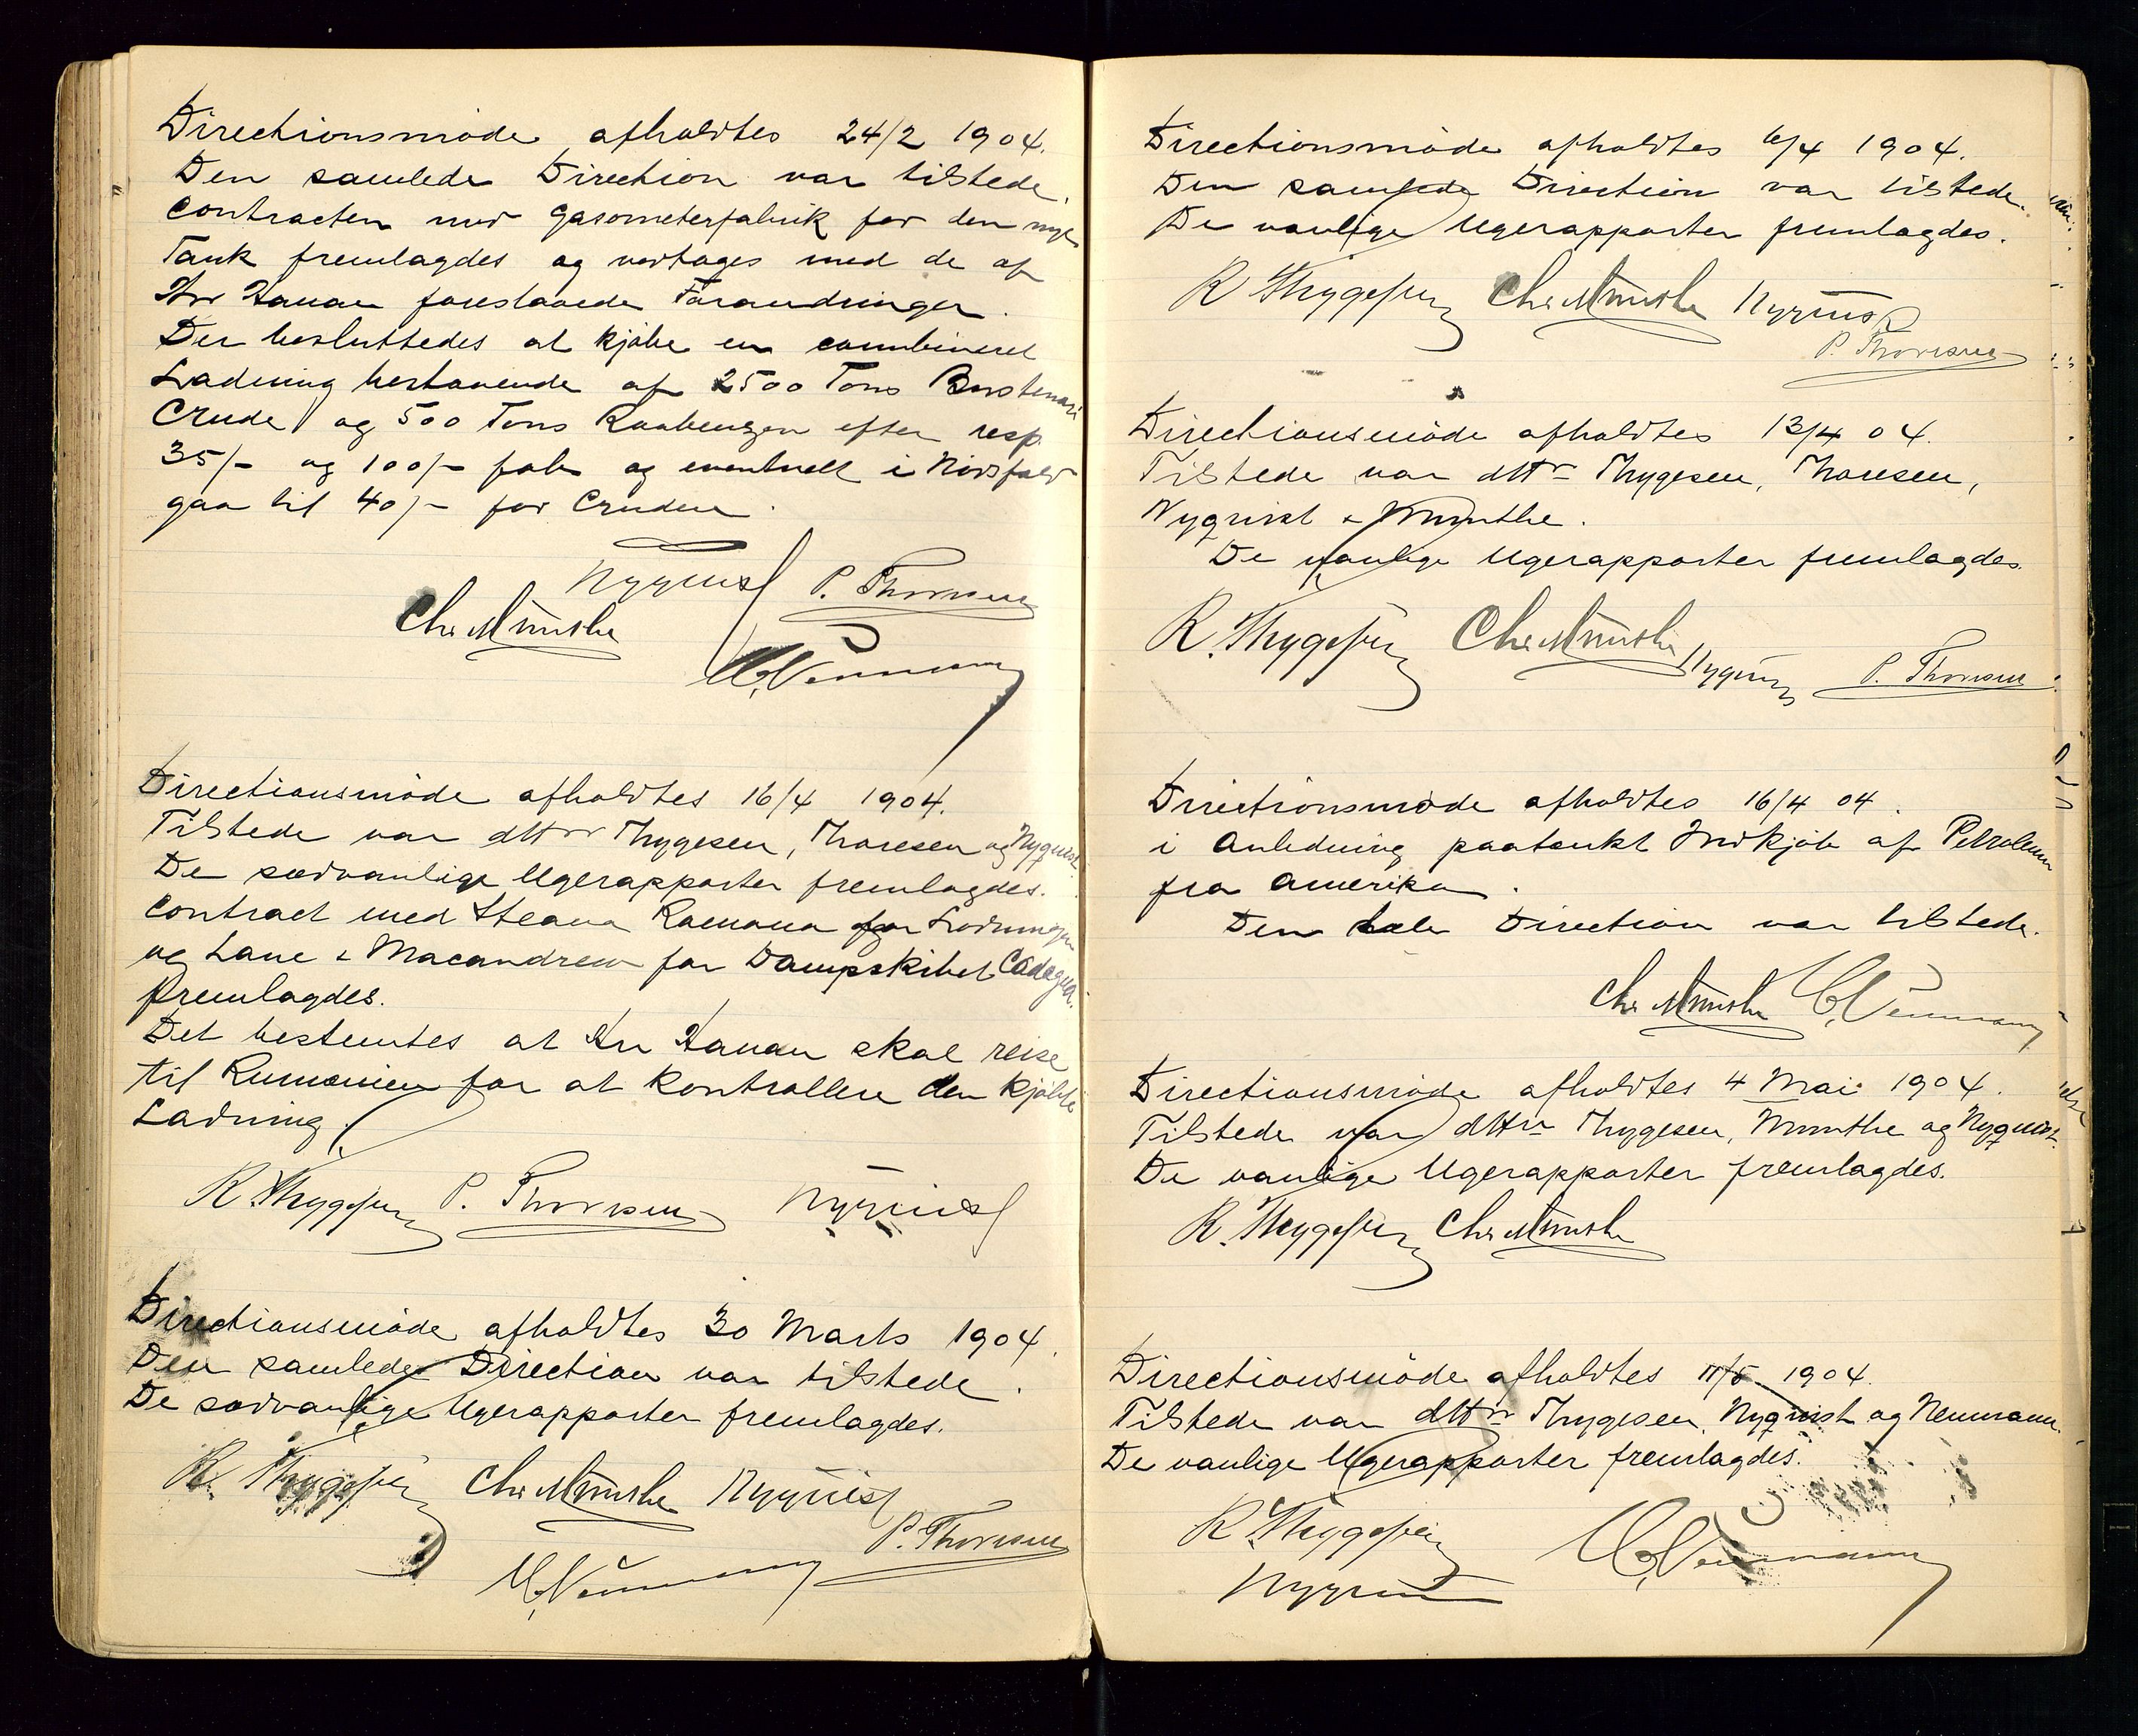 Directionsmøde afholdtes 24/2 1904.
Den samlede Direction var tilstede.
Contracten med Gasometerfabrik for den nye
Tank fremlagdes og vedtoges med de af
Hr Hanan foreslaaede Forandringer.
Der besluttedes at kjøbe en combineret
Ladning bestaaende af 2500 Tons Bustenari
Crude og 500 Tons Raabenzin efter resp.
35/- og 100/- fob og eventuelt i Nødsfald
gaa til 40/- for Cruden.
Nyquist P. Thoresen
Chr Munthe
Neumann
Directionsmøde afholdtes 16/4 1904.
Tilstede var dHrr Thygesen, Thoresen og Nyquist
De sædvanlige Ugerapporter fremlagdes.
Contract med Steaua Romana for Ladningen
og Lane & Macandrew for Dampskibet Cadagua
fremlagdes.
Det bestemtes at Hr Hanan skal reise
til Rumænien for at kontrollere den kjøbte
Ladning.
R. Thygesen P. Thoresen Nyquist
Directionsmøde afholdtes 30 Marts 1904.
Den samlede Direction var tilstede.
De sædvanlige Ugerapporter fremlagdes.
R. Thygesen Chr Munthe Nyquist
P. Thoresen
Neumann
Directionsmøde afholdtes 6/4 1904.
Den samlede Direction var tilstede.
De vanlige Ugerapporter fremlagdes.
R Thygesen Chr Munthe Nyquist
P. Thoresen
Directionsmøde afholdtes 13/4 04.
Tilstede var dHrr Thygesen, Thoresen,
Nyqvist & Munthe.
De vanlige Ugerapporter fremlagdes.
R. Thygesen Chr Munthe Nyquist P. Thoresen
Directionsmøde afholdtes 16/4 04.
i Anledning paatænkt Indkjøb af Petroleum
fra Amerika.
Den hele Direction var tilstede.
Chr Munthe Neumann
Directionsmøde afholdtes 4 Mai 1904.
Tilstede var dHrr Thygesen, Munthe og Nyquist.
De vanlige Ugerapporter fremlagdes.
R. Thygesen Chr Munthe
Directionsmøde afholdtes 11/5 1904.
Tilstede var dHrr Thygesen, Nyqvist og Neumann.
De vanlige Ugerapporter fremlagdes.
R Thygesen Neumann
Nyquist